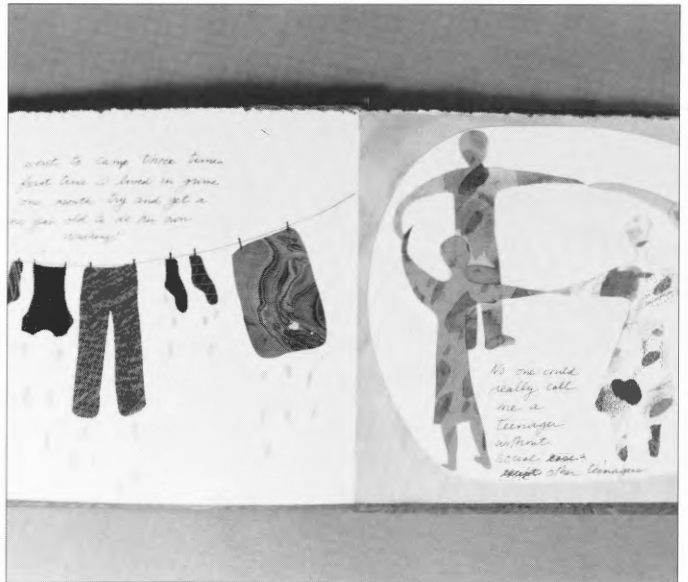 went to camp three times
first time I lived in grime
one month try and get a
year old to do her own
washing!
No one could
really call
me a
teenager
without
social
except other teenagers